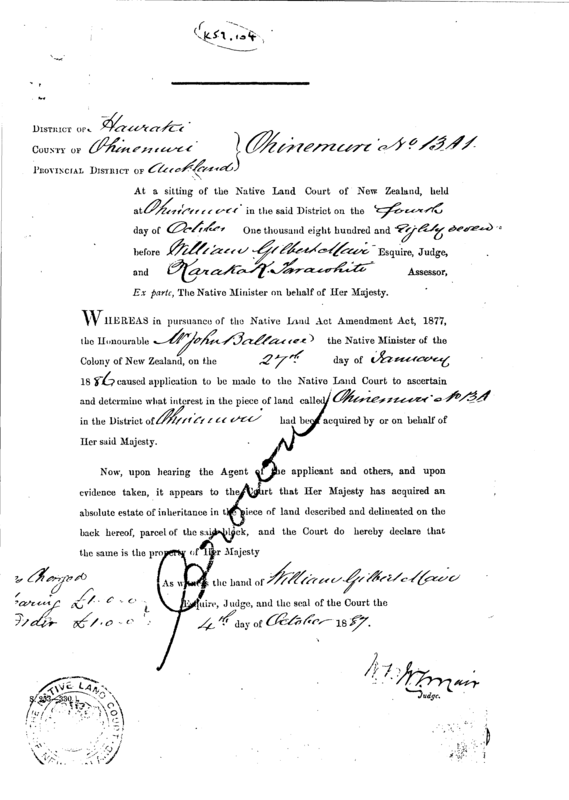 K52.104
DISTRICT OF Hauraki
COUNTY OF Ohinemuri } Ohinemuri No 13A1.
PROVINCIAL DISTRICT OF Auckland
At a sitting of the Native Land Court of New Zealand, held
at Ohinemuri in the said District on the fourth
day of October One thousand eight hundred and Eighty seven
before William Gilbert Mair Esquire, Judge,
and Karaka Tarawhiti Assessor,
Ex parte, The Native Minister on behalf of Her Majesty.
WHEREAS in pursuance of the Native Land Act Amendment Act, 1877,
the Honourable Mr John Ballance the Native Minister of the
Colony of New Zealand, on the 27th day of January
1886 caused application to be made to the Native Land Court to ascertain
and determine what interest in the piece of land called Ohinemuri No 13A
in the District of Ohinemuri had been acquired by or on behalf of
Her said Majesty.
Now, upon hearing the Agent of the applicant and others, and upon
evidence taken, it appears to the Court that Her Majesty has acquired an
absolute estate of inheritance in the piece of land described and delineated on the
back hereof, parcel of the said block, and the Court do hereby declare that
the same is the property of Her Majesty
As witness the hand of William Gilbert Mair
Esquire, Judge, and the seal of the Court the
4th day of October 1887.
Charged
earing £1.0.0
Order £1.0.0
W.G. Mair
Judge.
THE NATIVE LAND COURT OF NEW ZEALAND